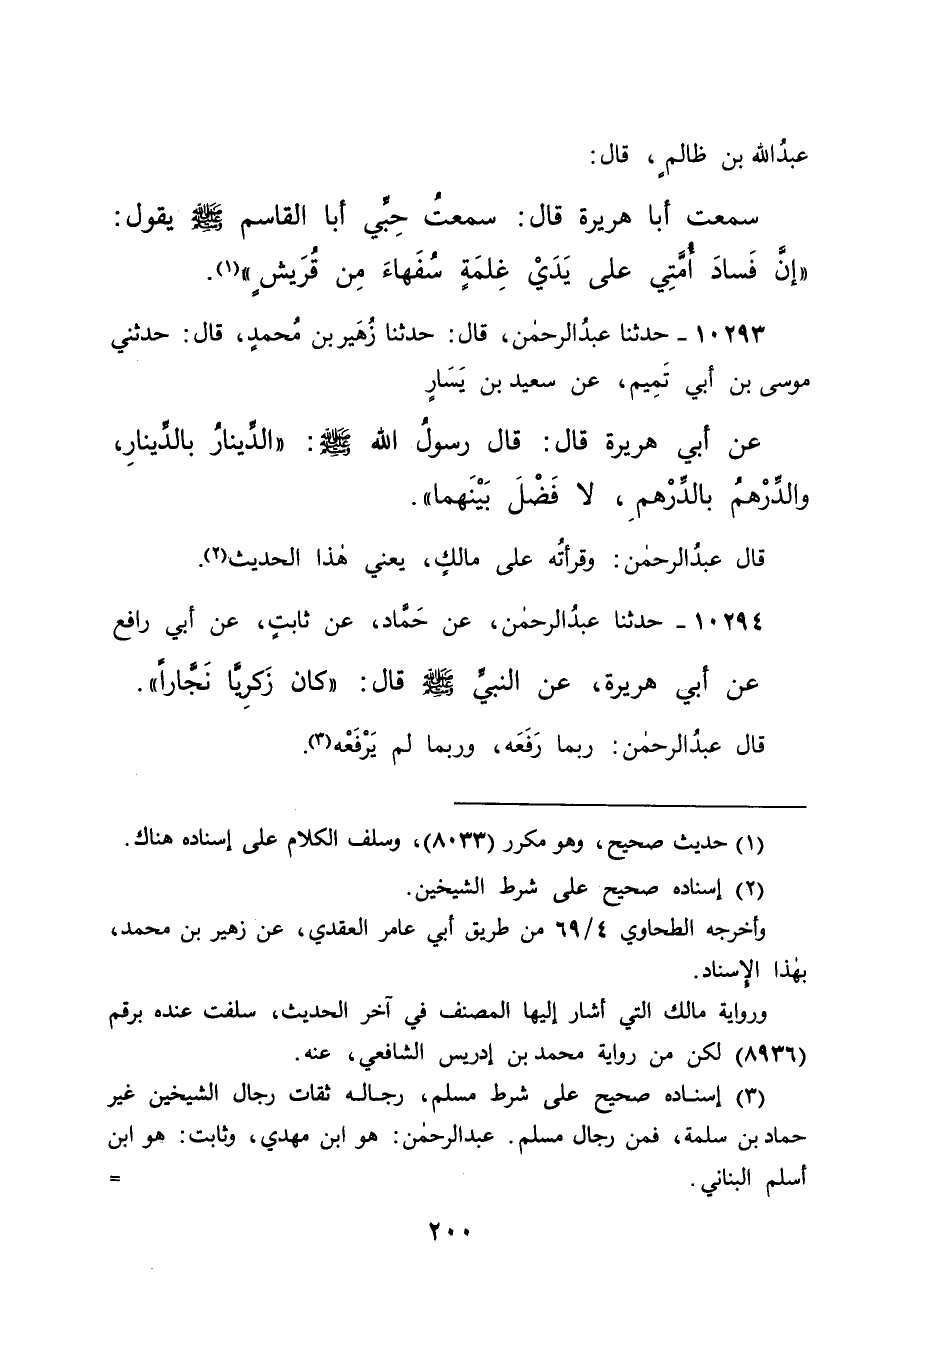 عبدُالله بن ظالمٍ، قال:
سمعت أبا هريرة قال: سمعتُ حِبِّي أبا القاسم ﷺ يقول:
«إنَّ فَسادَ أُمَّتِي على يَدَيْ غِلمَةٍ سُفَهاءَ مِن قُرَيشٍ»(١).
١٠٢٩٣ - حدثنا عبدُالرحمٰن، قال: حدثنا زُهَير بن مُحمدٍ، قال: حدثني
موسى بن أبي تَمِيم، عن سعيد بن يَسَارٍ
عن أبي هريرة قال: قال رسولُ الله ﷺ: «الدِّينارُ بالدِّينارِ،
والدِّرْهمُ بالدِّرْهمِ، لا فَضْلَ بَيْنَهما».
قال عبدُالرحمٰن: وقرأتُه على مالكٍ، يعني هٰذا الحديث(٢).
١٠٢٩٤ - حدثنا عبدُالرحمٰن، عن حَمَّاد، عن ثابتٍ، عن أبي رافع
عن أبي هريرة، عن النبيِّ ﷺ قال: «كان زَكرِيَّا نَجَّاراً».
قال عبدُالرحمٰن: ربما رَفَعَه، وربما لم يَرْفَعْه(٣).
(١) حديث صحيح، وهو مكرر (٨٠٣٣)، وسلف الكلام على إسناده هناك.
(٢) إسناده صحيح على شرط الشيخين.
وأخرجه الطحاوي ٦٩/٤ من طريق أبي عامر العقدي، عن زهير بن محمد،
بهٰذا الإسناد.
ورواية مالك التي أشار إليها المصنف في آخر الحديث، سلفت عنده برقم
(٨٩٣٦) لكن من رواية محمد بن إدريس الشافعي، عنه.
(٣) إسناده صحيح على شرط مسلم، رجاله ثقات رجال الشيخين غير
حماد بن سلمة، فمن رجال مسلم. عبدالرحمٰن: هو ابن مهدي، وثابت: هو ابن
أسلم البناني. =
٢٠٠